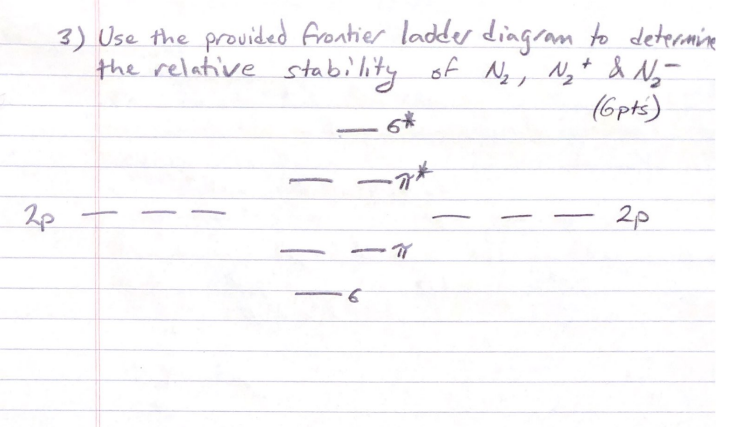 3) Use the provided frontier ladder diagram to determine
the relative stability of N₂, N₂⁺ & N₂⁻
(6pts)
σ*
π*
2p 2p
π
σ